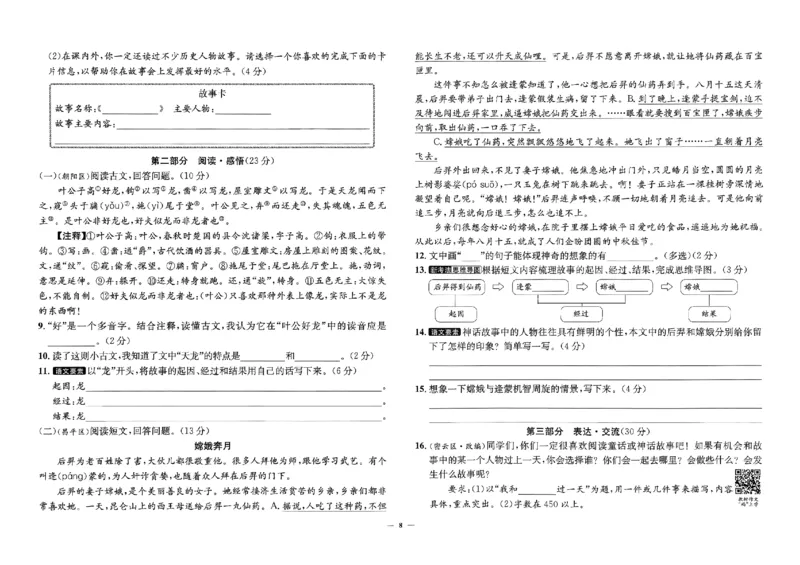 (2)在课内外,你一定还读过不少历史人物故事。请选择一个你喜欢的完成下面的卡
片信息,以帮助你在故事会上发挥最好的水平。(4 分)
故事卡
故事名称:《 》 主要人物:
故事主要内容:
第二部分 阅读·感悟(23 分)
(一)(朝阳区)阅读古文,回答问题。(10 分)
叶公子高①好龙,钩②以写③龙,凿④以写龙,屋室雕文⑤以写龙。于是天龙闻而下
之,窥⑥头于牖(yǒu)⑦,施(yì)尾于堂⑧。叶公见之,弃⑨而还走⑩,失其魂魄,五色无
主⑪。是叶公非好龙也,好夫似龙而非龙者也⑫。
【注释】①叶公子高:叶公,春秋时楚国的县令沈诸梁,字子高。②钩:衣服上的带
钩。③写:画。④凿:通“爵”,古代饮酒的器具。⑤屋室雕文:房屋上雕刻的图案、花纹。
文,通“纹”。⑥窥:偷看、探望。⑦牖:窗户。⑧拖尾于堂:尾巴拖在厅堂上。拖,动词,
意思是延伸。⑨弃:躲开。⑩还走:转身就跑。还,通“旋”,转身。⑪五色无主:大惊失
色,不能自制。⑫好夫似龙而非龙者也:(叶公)只喜欢那种外表上像龙,实际上不是龙
的东西啊!
9. “好”是一个多音字。结合注释,读懂古文,我认为它在“叶公好龙”中的读音应是
。(2 分)
10. 读了这则小古文,我知道了文中“天龙”的特点是 和 。(2 分)
11. 语文要素 以“龙”开头,将故事的起因、经过和结果用自己的话写下来。(6 分)
起因:龙 。
经过:龙 。
结果:龙 。
(二)(昌平区)阅读短文,回答问题。(13 分)
嫦娥奔月
后羿为老百姓除了害,大伙儿都很敬重他。很多人拜他为师,跟他学习武艺。有个
叫逄(páng)蒙的,为人奸诈贪婪,也随着众人拜在后羿的门下。
后羿的妻子嫦娥,是个美丽善良的女子。她经常接济生活贫苦的乡亲,乡亲们都非
常喜欢她。一天,昆仑山上的西王母送给后羿一丸仙药。A. 据说,人吃了这种药,不但
能长生不老,还可以升天成仙哩。可是,后羿不愿意离开嫦娥,就让她将仙药藏在百宝
匣里。
这件事不知怎么被逄蒙知道了,他一心想把后羿的仙药弄到手。八月十五这天清
晨,后羿要带弟子出门去,逄蒙假装生病,留了下来。B. 到了晚上,逄蒙手提宝剑,迫不
及待地闯进后羿家里,威逼嫦娥把仙药交出来。……眼看就要搜到百宝匣了,嫦娥疾步
向前,取出仙药,一口吞了下去。
C. 嫦娥吃了仙药,突然飘飘悠悠地飞了起来。她飞出了窗子……一直朝着月亮
飞去。
后羿外出回来,不见了妻子嫦娥。他焦急地冲出门外,只见皓月当空,圆圆的月亮
上树影婆娑(pó suō),一只玉兔在树下跳来跳去。啊!妻子正站在一棵桂树旁深情地
凝望着自己呢。“嫦娥!嫦娥!”后羿连声呼唤,不顾一切地朝着月亮追去。可是他向前
追三步,月亮就向后退三步,怎么也追不上。
乡亲们很想念好心的嫦娥,在院子里摆上嫦娥平日爱吃的食品,遥遥地为她祝福。
从此以后,每年八月十五,就成了人们企盼团圆的中秋佳节。
12. 文中画“ ”的句子能体现神奇的想象的有 。(多选)(2 分)
13. 新考法思维导图 根据短文内容梳理故事的起因、经过、结果,完成思维导图。(3 分)
后羿得到仙药 逄蒙 嫦娥 嫦娥
起因 经过 结果
14. 语文要素 神话故事中的人物往往具有鲜明的个性,本文中的后羿和嫦娥分别给你留
下了怎样的印象?简单写一写。(4 分)
15. 想象一下嫦娥与逄蒙机智周旋的情景,写下来。(4 分)
第三部分 表达·交流(30 分)
16. (密云区·改编)同学们,你们一定很喜欢阅读童话或神话故事吧!如果有机会和故
事中的某一个人物过上一天,你会选择谁?你们会一起去哪里?会做些什么?会发
生什么故事呢?
要求:(1)以“我和 过一天”为题,用一件或几件事来描写,内容
具体,重点突出。(2)字数在 450 以上。
— 8 —